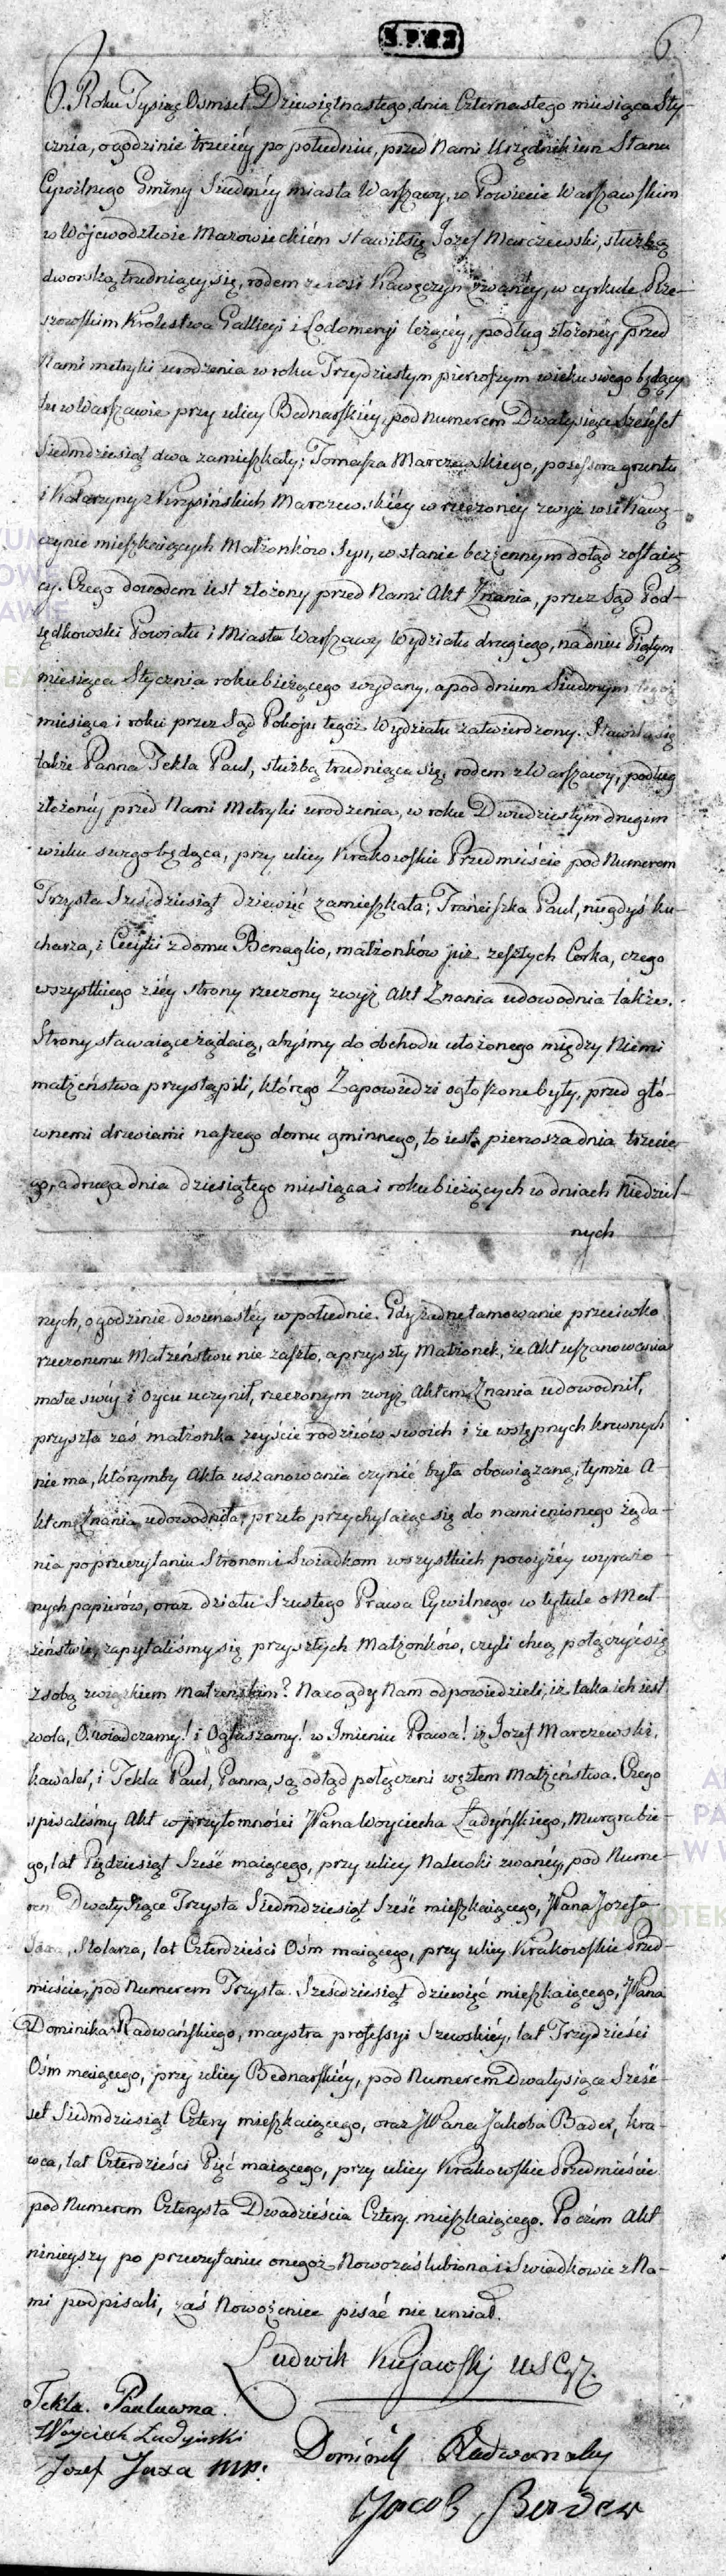 S.P.R2
6
Roku Tysiąc Osmset Dziewiętnastego, dnia Czternastego miesiąca Sty-
cznia, o godzinie trzeciéy po południu, przed Nami Urzędnikiem Stanu
Cywilnego Gminy Siódméy miasta Warszawy, w Powiecie Warszawskim
w Wojewodztwie Mazowieckiém stawił się Jozef Marczewski, służbą
dworską trudniący się, rodem ze wsi Kawęczyn zwanéy, w cyrkule Rze-
szowskim Krolestwa Gallicyi i Lodomeryi leżącéy, podług złożonéy przed
Nami metryki urodzenia w roku Trzydziestym pierwszym wieku swego będący
tu w Warszawie przy ulicy Bednarskiéy, pod numerem Dwatysiące Sześćset
Siedmdziesiąt dwa zamieszkały; Tomasza Marczewskiego, possessora gruntu
i Katarzyny z Krysińskich Marczewskiéy w rzeczonéy zwyż wsi Kawę-
czynie mieszkaiących Małżonków Syn, w stanie bezżennym dotąd zostaią-
cy. Czego dowodem iest złożony przed Nami Akt Znania, przez Sąd Pod-
sędkowski Powiatu i Miasta Warszawy Wydziału drugiego, na dniu Piątym
miesiąca Stycznia roku bieżącego wydany, a pod dniem Siódmym tegoż
miesiąca i roku przez Sąd Pokoju tegoż Wydziału zatwierdzony. Stawiła się
także Panna Tekla Paul, służbą trudniąca się, rodem z Warszawy, podług
złożonéy przed Nami Metryki urodzenia, w roku Dwudziestym drugim
wieku swego będąca, przy ulicy Krakowskie Przedmieście pod Numerem
Trzysta Sześćdziesiąt dziewięć zamieszkała; Franciszka Paul, niegdyś ku-
charza, i Cecylii z domu Benaglio, małżonków już zeszłych Corka, czego
wszystkiego z iéy strony rzeczony zwyż Akt Znania udowodnia także.
Strony stawaiące żądaią, abyśmy do obchodu ułożonego między Niemi
małżeństwa przystąpili, którego Zapowiedzi ogłoszone były, przed głó-
wnemi drzwiami naszego domu gminnego, to iest pierwsza dnia trzecie-
go, a druga dnia dziesiątego miesiąca i roku bieżących w dniach Niedziel-
nych
nych, o godzinie dwunastéy w południe. Gdy żadne tamowanie przeciwko
rzeczonemu Małżeństwu nie zaszło, a przyszły Małżonek, że Akt uszanowania
matce swéy i oycu uczynił, rzeczonym zwyż Aktem Znania udowodnił,
przyszła zaś małżonka zeyście rodziców swoich i że wstępnych krewnych
nie ma, którymby Akta uszanowania czynić była obowiązaną, tymże A-
ktem Znania udowodniła; przeto przychylaiąc się do namienionego żąda-
nia po przeczytaniu Stronom i Swiadkom wszystkich powyżéy wyrażo-
nych papierów, oraz działu Szóstego Prawa Cywilnego w tytule o Mał-
żeństwie, zapytaliśmy się przyszłych Małżonków, czyli chcą połączyć się
z sobą związkiem małżeńskim? Na co gdy Nam odpowiedzieli, iż taka ich iest
wola, Oświadczamy! i Ogłaszamy! w Imieniu Prawa! iż Jozef Marczewski,
kawaler, i Tekla Paul, Panna, są odtąd połączeni węzłem Małżeństwa. Czego
spisaliśmy Akt w przytomności JPana Woyciecha Ładyńskiego, Murgrabie-
go, lat Pięćdziesiąt Sześć maiącego, przy ulicy Nalewki zwanéy, pod Nume-
rem Dwatysiące Trzysta Siedmdziesiąt Sześć mieszkaiącego, JPana Jozefa
Jaxa, Stolarza, lat Czterdzieści Ośm maiącego, przy ulicy Krakowskie Przed-
mieście, pod Numerem Trzysta Sześćdziesiąt dziewięć mieszkaiącego, JPana
Dominika Radwańskiego, maystra professyi Szewskiéy, lat Trzydzieści
Ośm maiącego, przy ulicy Bednarskiéy, pod Numerem Dwatysiące Sześć-
set Siedmdziesiąt Cztery mieszkaiącego, oraz JPana Jakoba Bader, kra-
wca, lat Czterdzieści Pięć maiącego, przy ulicy Krakowskie Przedmieście
pod Numerem Czterysta Dwadzieścia Cztery mieszkaiącego. Po czém Akt
ninieyszy po przeczytaniu onegoż Nowozaślubiona i Swiadkowie z Na-
mi podpisali, zaś Nowożeniec pisać nie umiał.
Ludwik Kujawski USC
Tekla Pauluwna
Woyciech Ładyński
Jozef Jaxa mp.
Dominik Radwansky
Jacob Bader